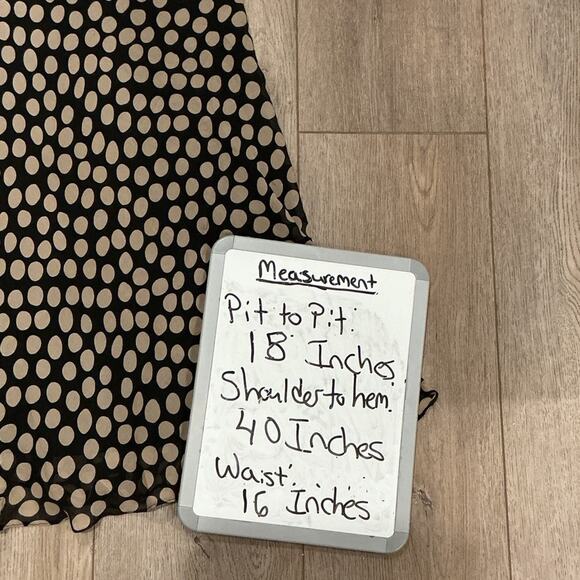 Measurement
Pit to Pit:
18 Inches
Shoulder to hem.
40 Inches
Waist:
16 Inches